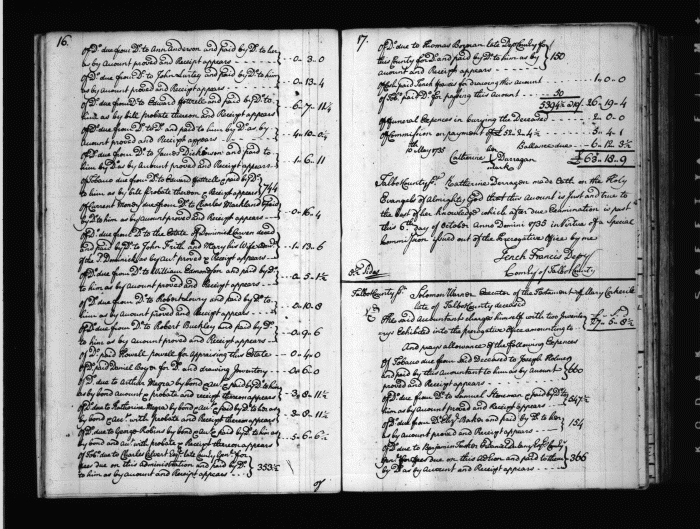 16.
Of Do. due from Do. to Ann Anderson and paid by Do. to her
as by Account proved and Receipt appears - - - 0- 3- 0
Of Do. due from Do. to John and paid by Do. to him
as by Account proved and Receipt appears - - - 0- 13- 4
Of Do. due from Do. to Edward Cottrell and paid by Do. to
him as by bill probate thereon and Receipt appears - 6- 7- 11½
Of Do. due from Do. to Do. and paid to him by Do. as by
Account proved and Receipt appears - - - 4- 10- 0½
Of Do. due from Do. to James Dickinson and paid to
him by Do. as by Account proved and Receipt appears - 1- 6- 11
Of Tobacco due from Do. to Edward Cottrell & paid by Do.
to him as by bill Probate thereon & Receipt appears 744
Of Current Money due from Do. to Charles Markland & paid
by Do. to him as by Account proved and Receipt appears - 0- 16- 4
Of Do. due from Do. to the Estate of Dominick deced
and paid by Do. to John Frith and Mary his Wife
of the Sd. Dominick as by Acct. proved & Receipt appears - 1- 13- 6
Of Do. due from Do. to William Edmondson and paid by Do.
to him as by Account proved and Receipt appears - 0- 5- 1½
Of Do. due from Do. to Robert Lowry and paid by Do. to
him as by Account proved and Receipt appears - 0- 10- 8
Of Do. due from Do. to Robert Buckley and paid by Do. to
him as by Account proved and Receipt appears - 0- 9- 6
Of Do. paid Howell Powell for Appraising this Estate - 0- 4- 0
Of Do. paid Daniel Bryan for Do. and drawing Inventory - 0- 6- 0
Of Do. due to Arthur Megra by bond & Acct. & paid by Do. to him as
by bond account & probate and receipt thereon appears - 3- 8- 11½
Of Do. due to Katherine Megra by bond & Acct. & paid by Do. to her as
by bond & Acct. with probate and Receipt thereon appears - 3- 8- 11½
Of Do. due to George Robins by bond & Acct. & paid by Do. to him as
by bond and Acct. with probate & Receipt thereon appears - 5- 6- 6½
Of Tobo. due to Charles Calvert Esqr. late Comly Genl. for
fees due on this administration and paid by Do.
to him as by Account and Receipt appears - - 353½
of
17.
Of Do. due to Thomas Bozman late Depy Comly for
this County for Do. and paid by Do. to him as by 150
account and Receipt appears - - -
Of Cash paid Tench Francis for drawing this account - 1- 0- 0
Of Tobo. paid Do. for passing this Account - - 50
5394½ at - 26- 19- 4
Of Funeral Expences in burying the deceased - - 2- 0- 0
Of Commission on payment of £ 52. 2. 4½ - - 5- 4- 1
Ballance due - - 6- 12- 3½
10th May 1735
her
Catherine Darragan
mark
£ 63- 18- 9
Talbot County ss. Katherine Derragon made Oath on the Holy
Evangels of Almighty God that this Account is just and true to
the best of her knowledge which after due Examination is past
this 6th day of October Anno Domini 1735 in Virtue of a Special
Commission issued out of the Prerogative Office by me
Tench Francis Depy
Comly of Talbot County
Talbot County ss. Solomon Warner Executor of the Testament of Mary
late of Talbot County deceased
The said Accountant charges himself with two Inventorys
Exhibited into the prerogative Office amounting to - 57- 5- 8½
And prays allowance of the following Expences
Of Tobacco due from Said Deceased to Joseph
and paid by this Accountant to him as by Account 660
proved and Receipt appears - - -
Of Do. due from Do. to Samuel and paid by Do. to
him as by Account proved and Receipt appears 547½
Of Do. due from Do. to and paid by Do. to her
as by Account proved and Receipt appears - - 154
Of Do. due to Benjamin Tasker and Comly
Genl. for fees due on this Admon and paid to them 366
by Do. as by Account and Receipt appears - - -